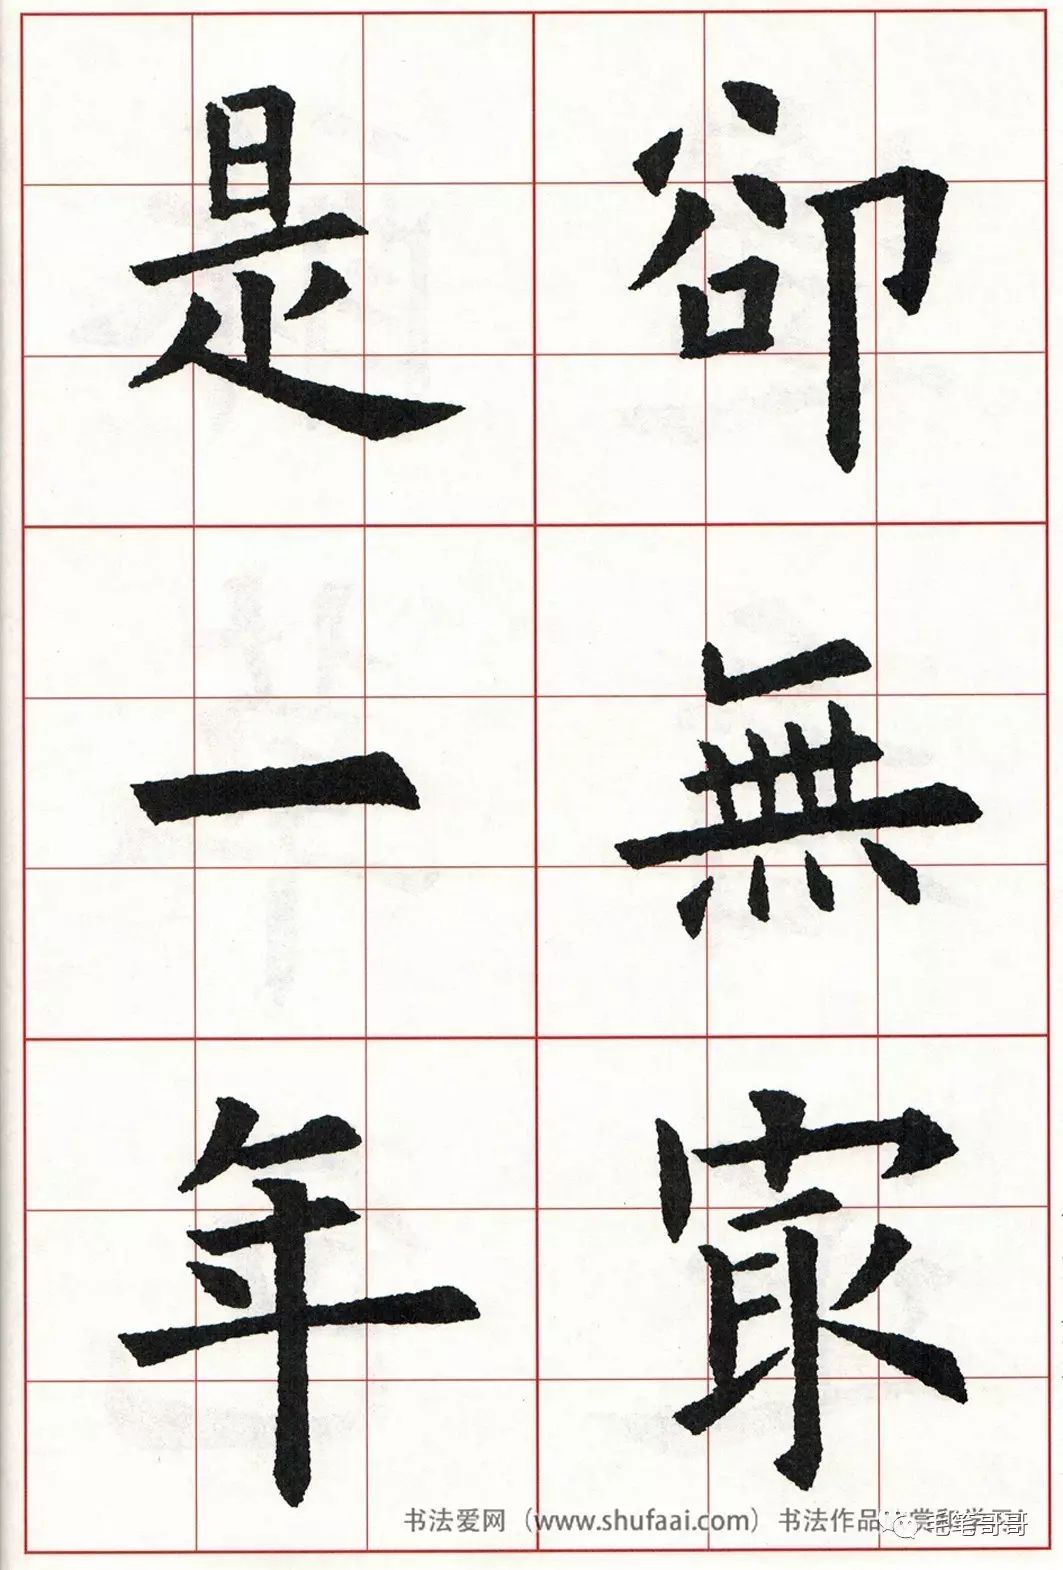 卻無㝡
是一年
书法爱网（www.shufaai.com）书法作品 赏和学习
毛笔哥哥